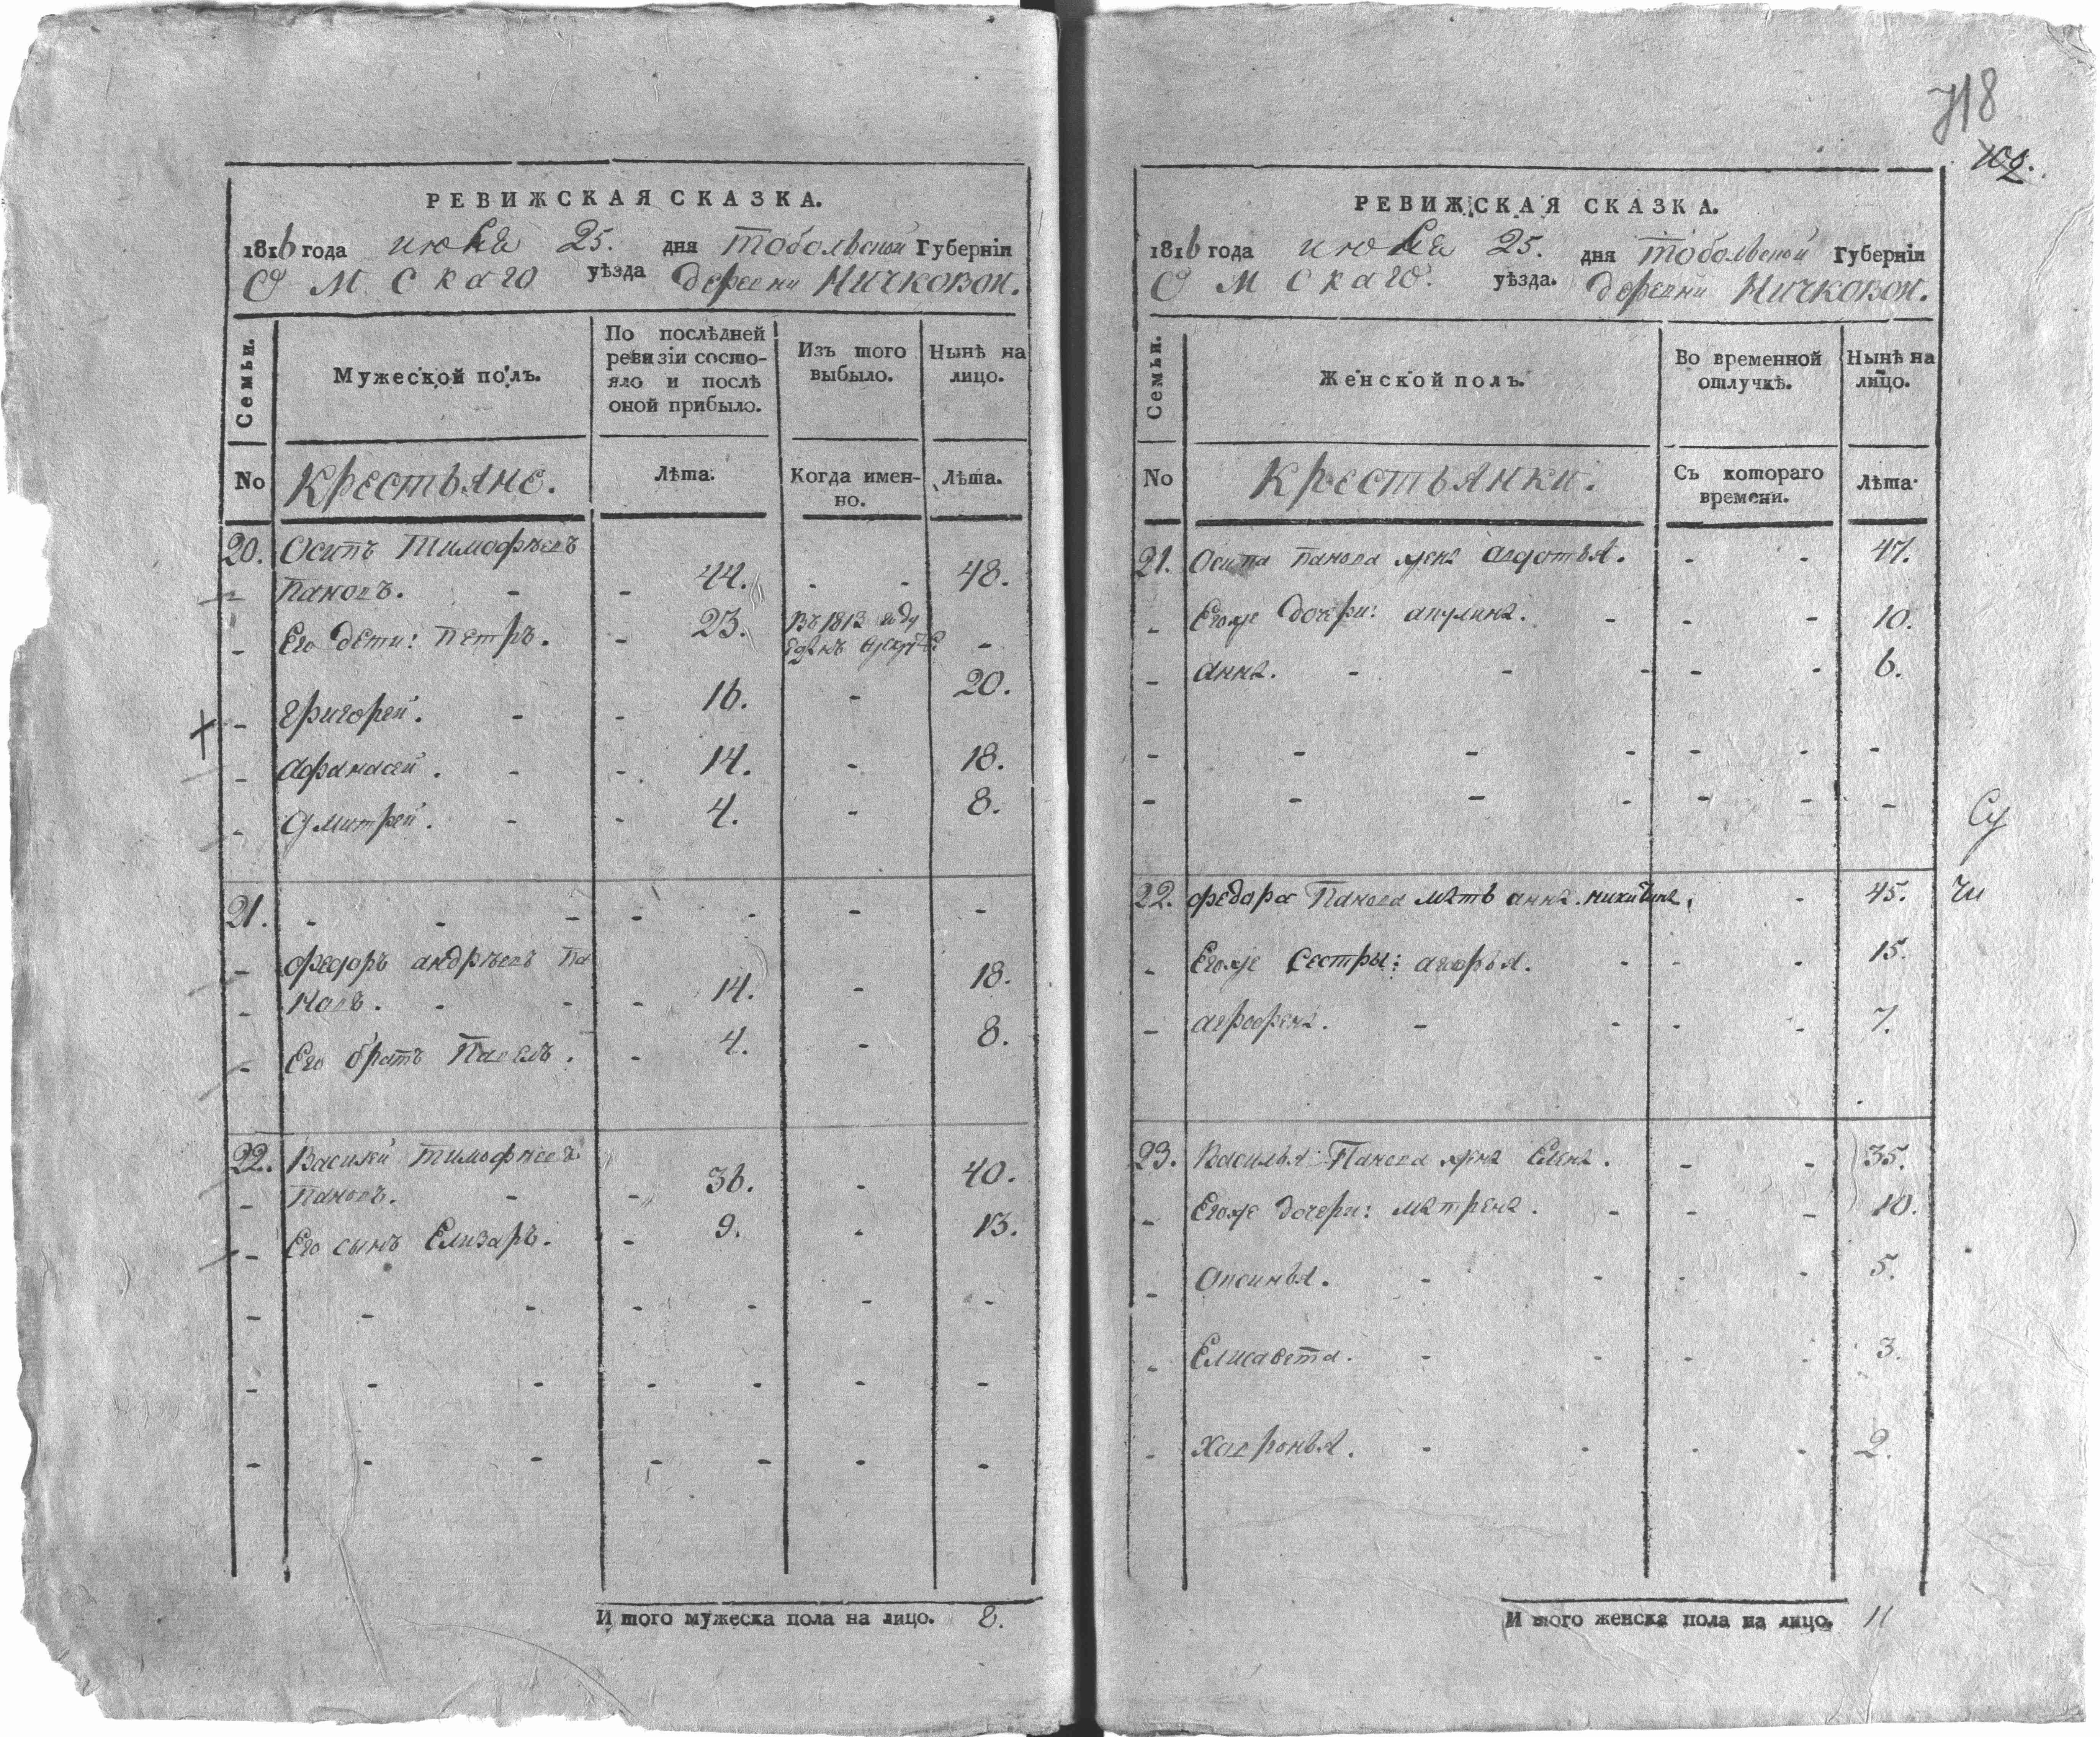 718
РЕВИЖСКАЯ СКАЗКА.
1816 года июня 25. дня тобольской Губерніи
Омскаго уѣзда деревни Ничковой.
Семьи.
Мужеской полъ.
По послѣдней ревизіи состо-
яло и послѣ оной прибыло.
Изъ того выбыло.
Нынѣ на лицо.
No
Крестьяне.
Лѣта.
Когда имен-
но.
Лѣта.
20. Осипъ Тимофѣевъ
Пановъ. - - 44. - - 48.
- Его дети: Петръ. - 23. Въ 1813 году
- Григорей. - - 16. - 20.
- Афанасей. - - 14. - 18.
- Дмитрей. - - 4. - 8.
21. - - - - - - -
- Федоръ андрѣевъ Па
- новъ. - - - 14. - 18.
- Его братъ Павелъ. - 4. - 8.
22. Василей тимофѣевъ
- Пановъ. - - 36. - 40.
- Его сынъ Елизаръ. - 9. - 13.
- - - - - - -
- - - - - - -
- - - - - - -
Итого мужеска пола на лицо. 8.
РЕВИЖСКАЯ СКАЗКА.
1816 года июня 25. дня тобольской Губерніи
Омскаго уѣзда. деревни Ничковой.
Семьи.
Женской полъ.
Во временной отлучкѣ.
Нынѣ на лицо.
No
Крестьянки.
Съ котораго времени.
Лѣта.
21. Осипа Панова жена авдотья. - - 47.
- Егоже дочери: акулина. - - - 10.
- анна. - - - - - 6.
- - - - - - -
- - - - - - -
22. федора Панова мать анна никитина. - 45.
- Егоже сестры: - - - 15.
- агрофена. - - - - 7.
23. Василья Панова жена Елена. - - 35.
- Егоже дочери: матрена. - - - 10.
- аксинья. - - - - 5.
- Елисавета. - - - - 3.
- Хавронья. - - - - 2.
Итого женска пола на лицо. 11